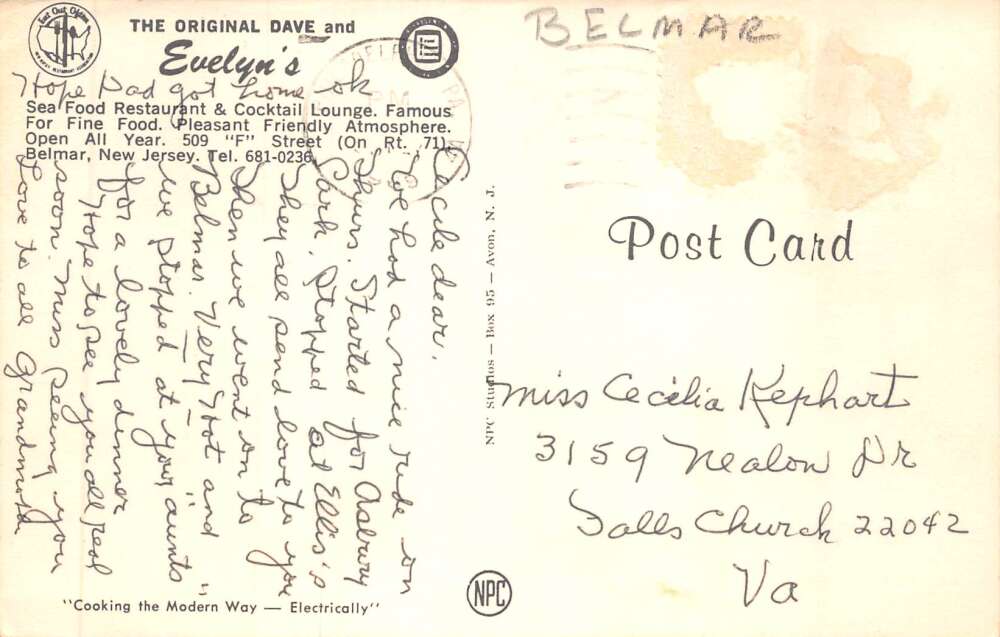 Eat Out Often
THE ORIGINAL DAVE and
Evelyn's
Hope Dad got home ok
Sea Food Restaurant & Cocktail Lounge. Famous
For Fine Food. Pleasant Friendly Atmosphere.
Open All Year. 509 "F" Street (On Rt. 71),
Belmar, New Jersey. Tel. 681-0236
Cecile dear.
We had a nice ride on
Thurs. Started for Asbury
Park. Stopped at Ellis's
They all send love to you
Then we went on to
Belmar. Very Hot and
we stopped at your aunts"
for a lovely dinner
Hope to see you all real
soon. Miss seeing you
Love to all Grandmoth
"Cooking the Modern Way — Electrically"
NPC Studios — Box 95 — Avon, N. J.
NPC
BELMAR
PM
PA
Post Card
Miss Cecilia Kephart
3159 Nealon Dr
Falls Church 22042
Va